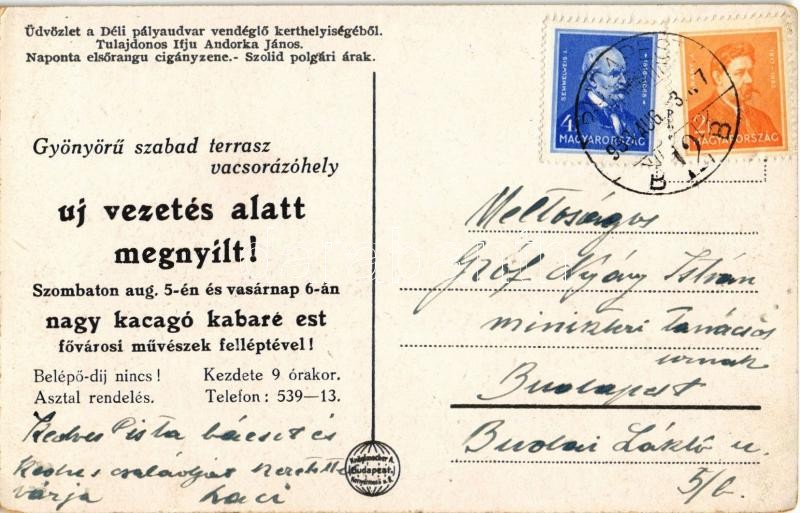 Üdvözlet a Déli pályaudvar vendéglő kerthelyiségéből.
Tulajdonos Ifju Andorka János.
Naponta elsőrangu cigányzene.- Szolid polgári árak.
Gyönyörű szabad terrasz
vacsorázóhely
uj vezetés alatt
megnyilt!
Szombaton aug. 5-én és vasárnap 6-án
nagy kacagó kabaré est
fővárosi művészek felléptével!
Belépő-dij nincs! Kezdete 9 órakor.
Asztal rendelés. Telefon: 539—13.
Kedves Pista bácsit és
kedves családját szeretettel
várja Laci
Budapest
SEMMELWEIS I.
4
MAGYARORSZÁG
2
MAGYARORSZÁG
AUG.
B
12
B
Méltóságos
Gróf Nyáry István
miniszteri tanácsos
urnak
Budapest
Budai László u.
5/b.